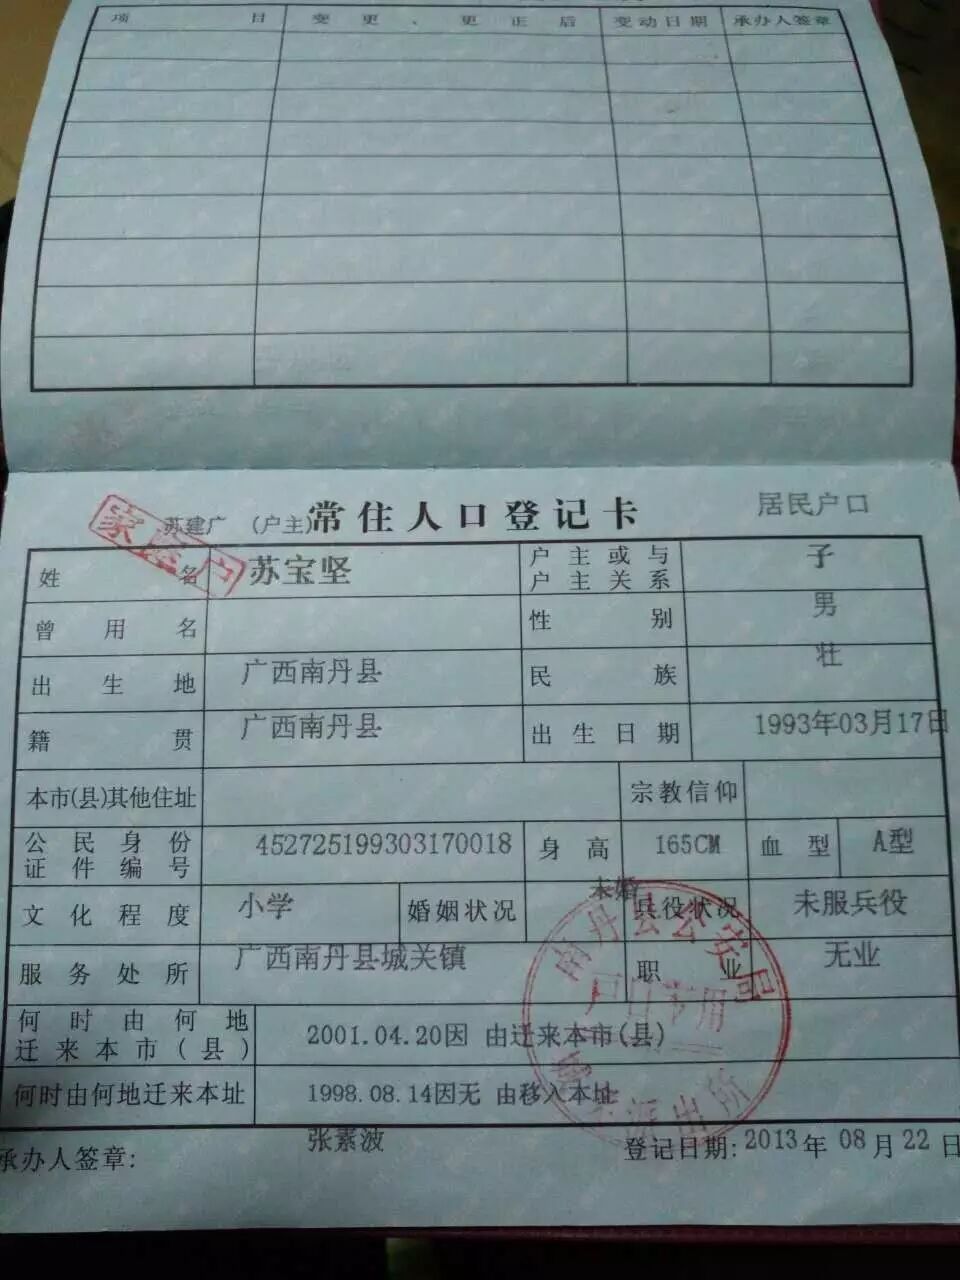 项 目 变 更 、 更 正 后 变动日期 承办人签章
苏建广 (户主) 常住人口登记卡 居民户口
姓 名 苏宝坚 户主或与户主关系 子
曾用名 性别 男
出生地 广西南丹县 民族 壮
籍贯 广西南丹县 出生日期 1993年03月17日
本市(县)其他住址 宗教信仰
公民身份证件编号 452725199303170018 身高 165CM 血型 A型
文化程度 小学 婚姻状况 未婚 兵役状况 未服兵役
服务处所 广西南丹县城关镇 职业 无业
何时由何地迁来本市(县) 2001.04.20因 由迁来本市(县)
何时由何地迁来本址 1998.08.14因无 由移入本址
承办人签章: 张素波 登记日期: 2013年08月22日
南丹县公安局
户口专用
派出所